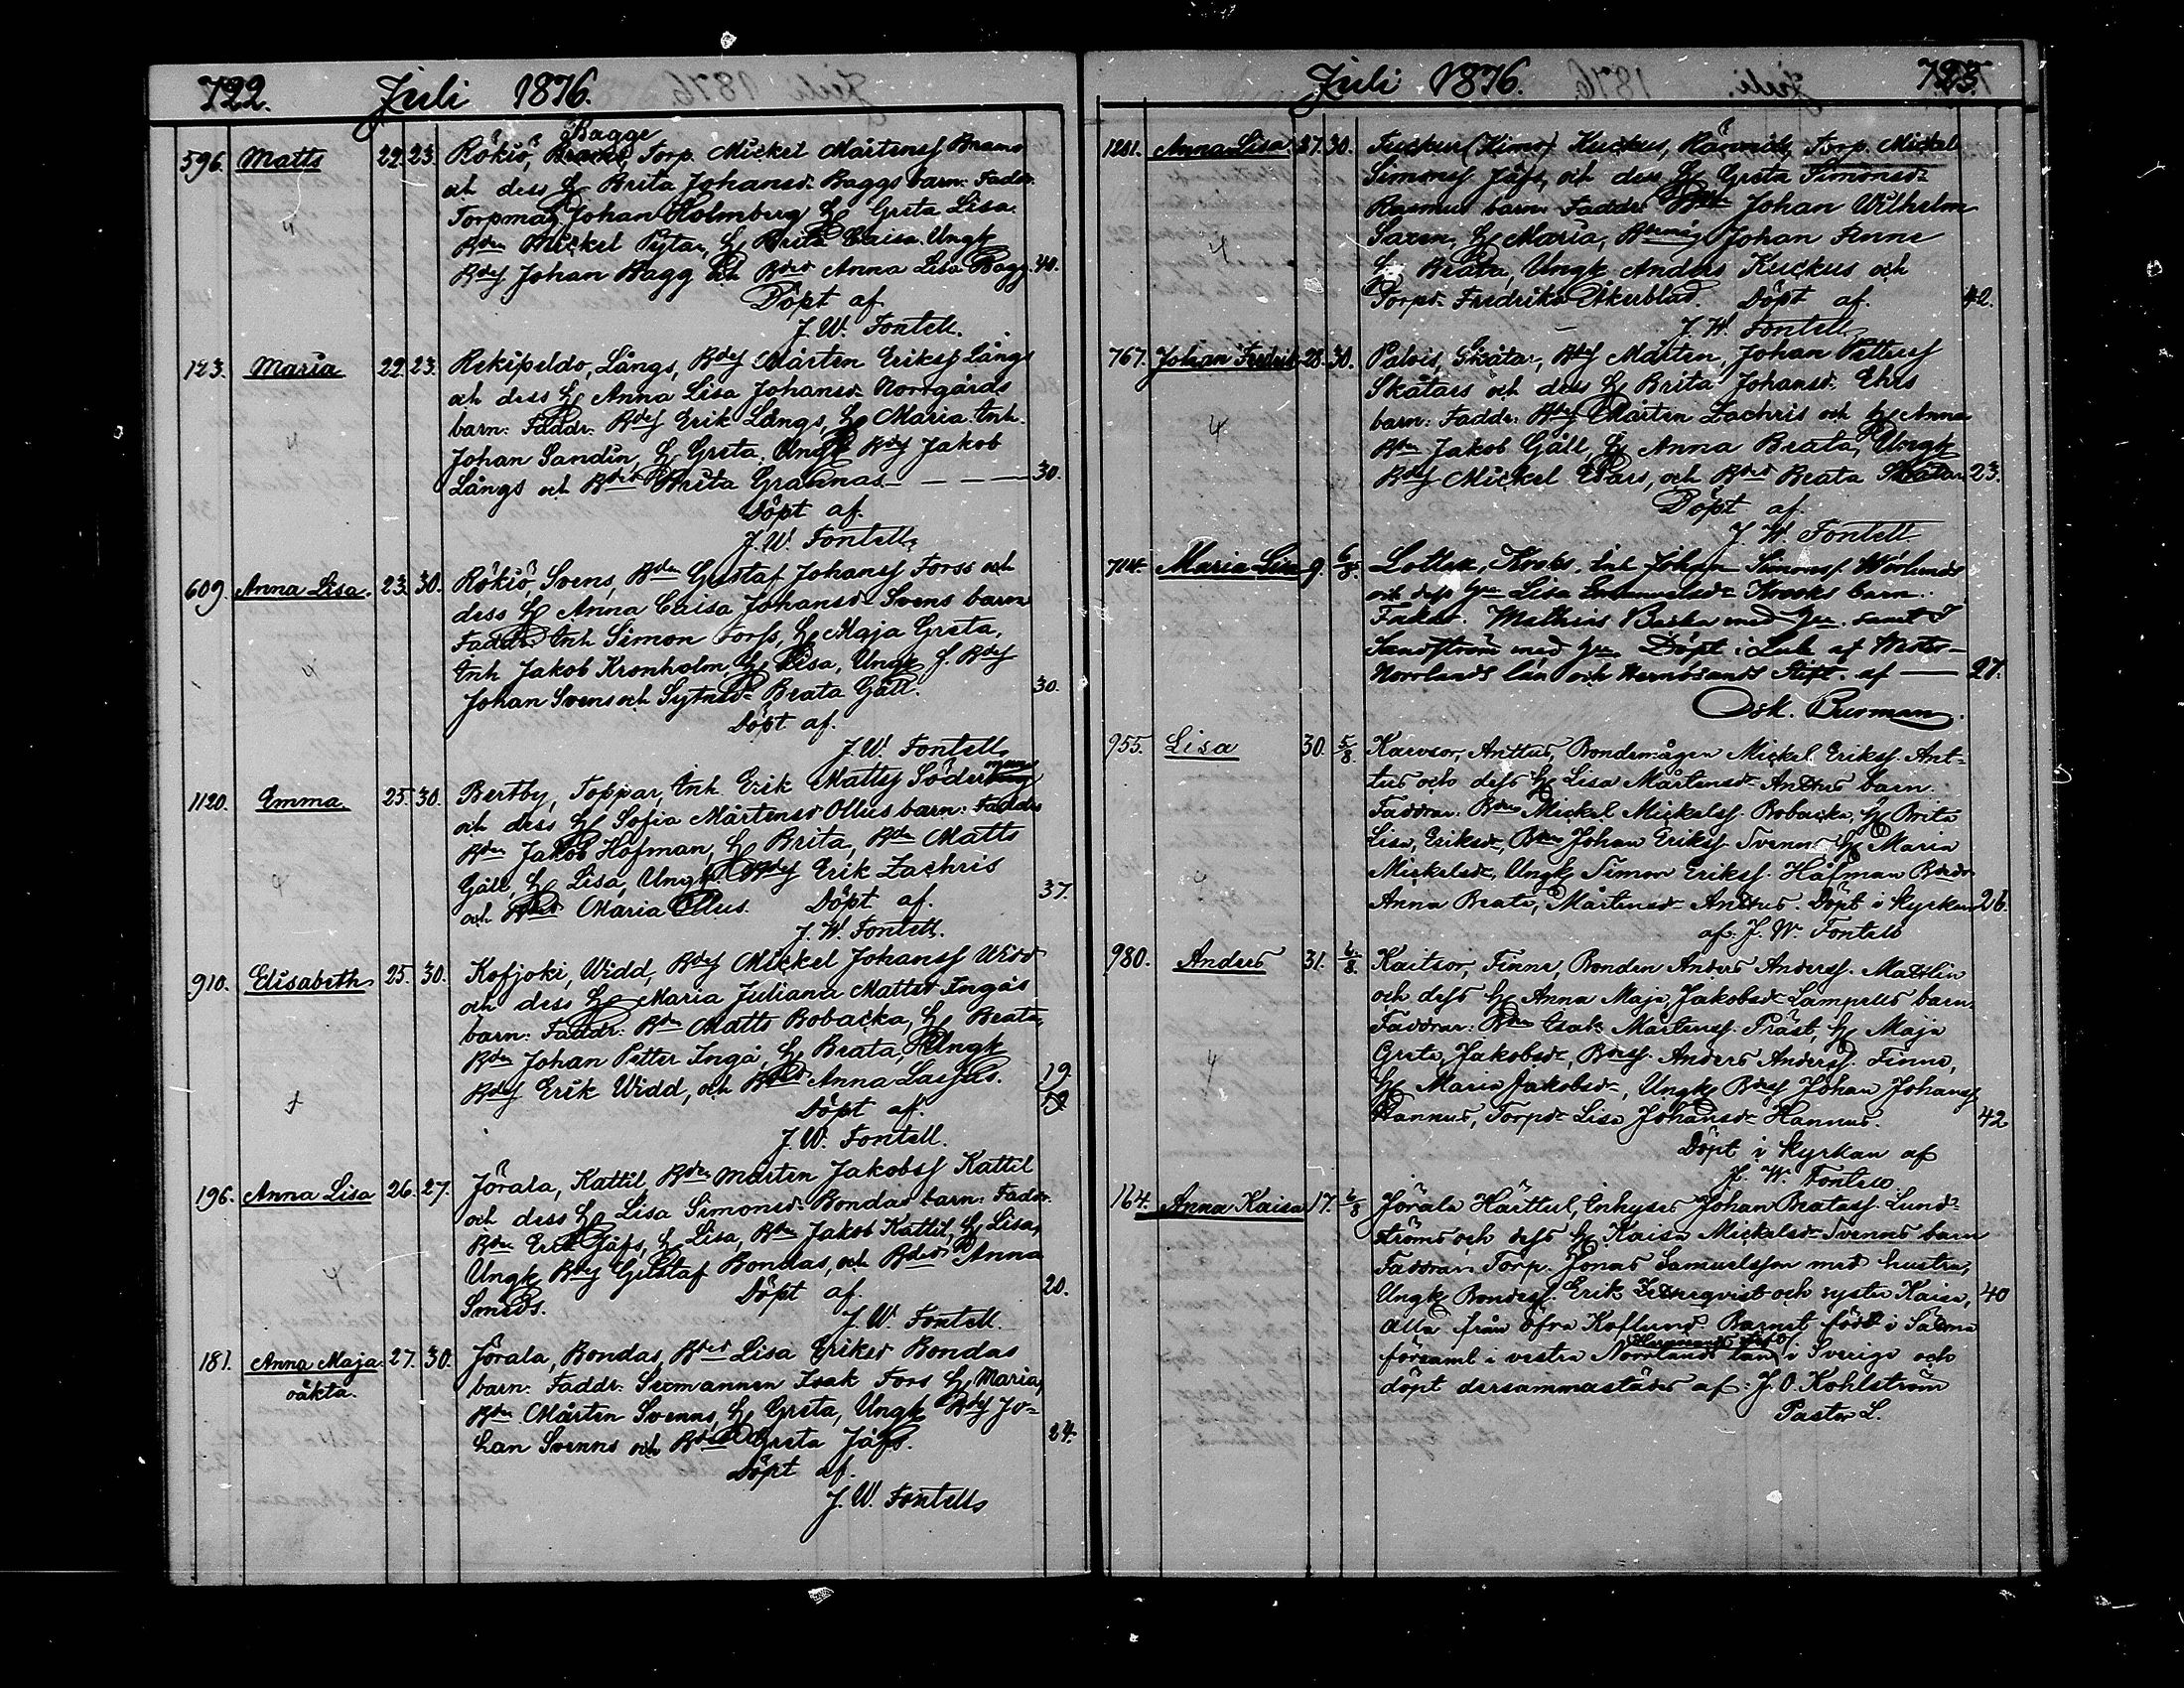 722. Juli 1876.
Bagge
596. Matts 22. 23. Rökiö, Brams, Torp. Mickel Mårtens Brams
och dess H. Brita Johansd. Baggs barn: Faddr.
Torpmåg Johan Holmberg H. Greta Lisa.
Bden Mickel Pytar, H. Brita Caisa. Ungk
Bdes Johan Bagg och Bdesd Anna Lisa Bagg. 40.
Döpt af
J. W. Fontell.
123. Maria 22. 23. Rekipeldo, Långs, Bdes Mårten Eriks Långs
och dess H. Anna Lisa Johansd. Norrgårds
barn: Faddr. Bdes Erik Långs, H. Maria. Inh.
Johan Sandin, H. Greta. Ungk Bdes Jakob
Långs och Bdesd Brita Grannas. 30.
Döpt af.
J. W. Fontell.
609. Anna Lisa. 23. 30. Rökiö, Svens, Bden Gustaf Johans Forss och
dess H. Anna Caisa Johansd. Svens barn
Faddr. Inh Simon Forss, H. Maja Greta,
Inh Jakob Kronholm, H. Lisa, Ungk f. Bdes
Johan Svens och Sytnsd. Beata Gäll. 30.
Döpt af.
J. W. Fontell.
1120. Emma 25. 30. Bertby, Toppar, Inh. Erik Matts Söderberg
och dess H. Sofia Mårtensd Ollus barn: Faddr
Bden Jakob Hofman, H. Brita, Bden Matts
Gäll, H. Lisa, Ungk Bdes Erik Zachris
och Bdesd Maria Ollus. Döpt af. 37.
J. W. Fontell.
910. Elisabeth 25. 30. Kofjoki, Widd, Bdes Mickel Johans Widd
och dess H. Maria Juliana Mattsd Ingås
barn: Faddr: Bden Matts Bobacka, H. Beata,
Bden Johan Petter Ingå, H. Beata, Ungk
Bdes Erik Widd, och Bdesd Anna Lassus. 19.
Döpt af.
J. W. Fontell.
196. Anna Lisa 26. 27. Jörala, Kattil Bden Mårten Jakobs Kattil
och dess H. Lisa Simonsd. Bondas barn: Faddr.
Bden Erik Jåfs, H. Lisa, Bden Jakob Kattil, H. Lisa,
Ungk Bdes Gustaf Bondas, och Bdesd Anna
Smeds. Döpt af. 20.
J. W. Fontell.
181. Anna Maja. 27. 30. Jörala, Bondas, Bdesd Lisa Eriksd Bondas
oäkta. barn: Faddr: Sexmannen Isak Fors H. Maria,
Bden Mårten Svenns, H. Greta, Ungk Bdes Jo-
han Svenns och Bdesd Greta Jåfs. 24.
Döpt af.
J. W. Fontell.
Juli 1876. 723.
1281. Anna Lisa 27. 30. (Kimo) Kuckus, Torp. Mickel
Simons Jåfs, och dess H. Greta Simonsd.
Rasmus barn. Faddr Johan Wilhelm
Saxen, H. Maria, Johan Finne
H. Beata, Ungk Anders Kuckus och
Torpd. Fredrika Åkerblad. Döpt af. 42.
J. W. Fontell
767. Johan Fredrik 28. 30. Palvis, Skåtar, Bdes Mårten, Johan Petters
Skåtars och dess H. Brita Johansd. Ehrs
barn: Faddr: Bdes Mårten Zachris och H. Anna
Bden Jakob Gäll, H. Anna Beata, Ungk
Bdes Mickel Ehars, och Bdesd Beata Skåtar 23.
Döpt af
J. W. Fontell
714. Maria Lisa 9. 6/8. Lotlax, Krooks, Inh Johan Simons Wörlunds
och dess Hu Lisa Emanuelsd. Krooks barn.
Fakdr. Mathias Backa med Hu. samt I
Sandström med Hu. Döpt i Lule af Wester-
Norrlands län och Hernösands Stift. af 27.
Osk. Burman.
955. Lisa 30. 5/8. Karvsor, Anttus, Bondemågen Mickel Eriks. Ant-
tus och dess H. Lisa Mårtensd. Anttus barn.
Faddrar: Bden Mickel Mickels. Bobacka, H. Brita
Lisa, Eriksd., Bden Johan Eriks. Svenns H. Maria
Mickelsd., Ungk Simon Eriks. Håfman Bdesd.
Anna Beata, Mårtensd. Anttus. Döpt i kyrkan 26.
af J. W. Fontell
980. Anders 31. 6/8. Kaitsor, Finne, Bonden Anders Anders. Mattlin
och dess H. Anna Maja, Jakobsd. Lampells barn.
Faddrar: Bden Isak Mårtens. Präst, H. Maja
Greta Jakobsd., Bdes. Anders Anders. Finne,
H. Maria Jakobsd., Ungk Bdes Johan Johans
Hannus, Torpd. Lisa Johansd. Hannus. 42
Döpt i kyrkan af
J. W. Fontell
164. Anna Kaisa 17. 6/8 Jörala Härttul, Inhyses Johan Beatas. Lund-
ströms och dess H. Kaisa Mickelsd. Svenns barn
Faddrar: Torp. Jonas Samuelsson med hustru,
Ungk Bondes. Erik Zetterqvist och syster Kaisa, 40
alla från öfra Koflund Barnet född i Sätna
församl i vestra Norrlands län i Sverige och
döpt dersammastädes af: J. O. Kohlström
Pastor L.